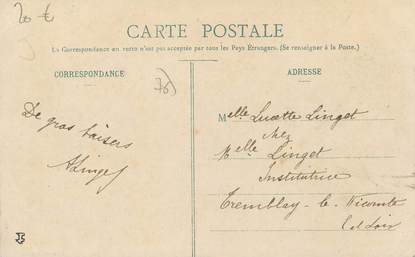 20 €
CARTE POSTALE
La Correspondance au verso n'est pas acceptée par tous les Pays Étrangers. (Se renseigner à la Poste.)
CORRESPONDANCE
76)
De gros baisers
ALinget
ADRESSE
Melle Lucette Linget
chez
Melle Linget
Institutrice
Tremblay-le-Vicomte